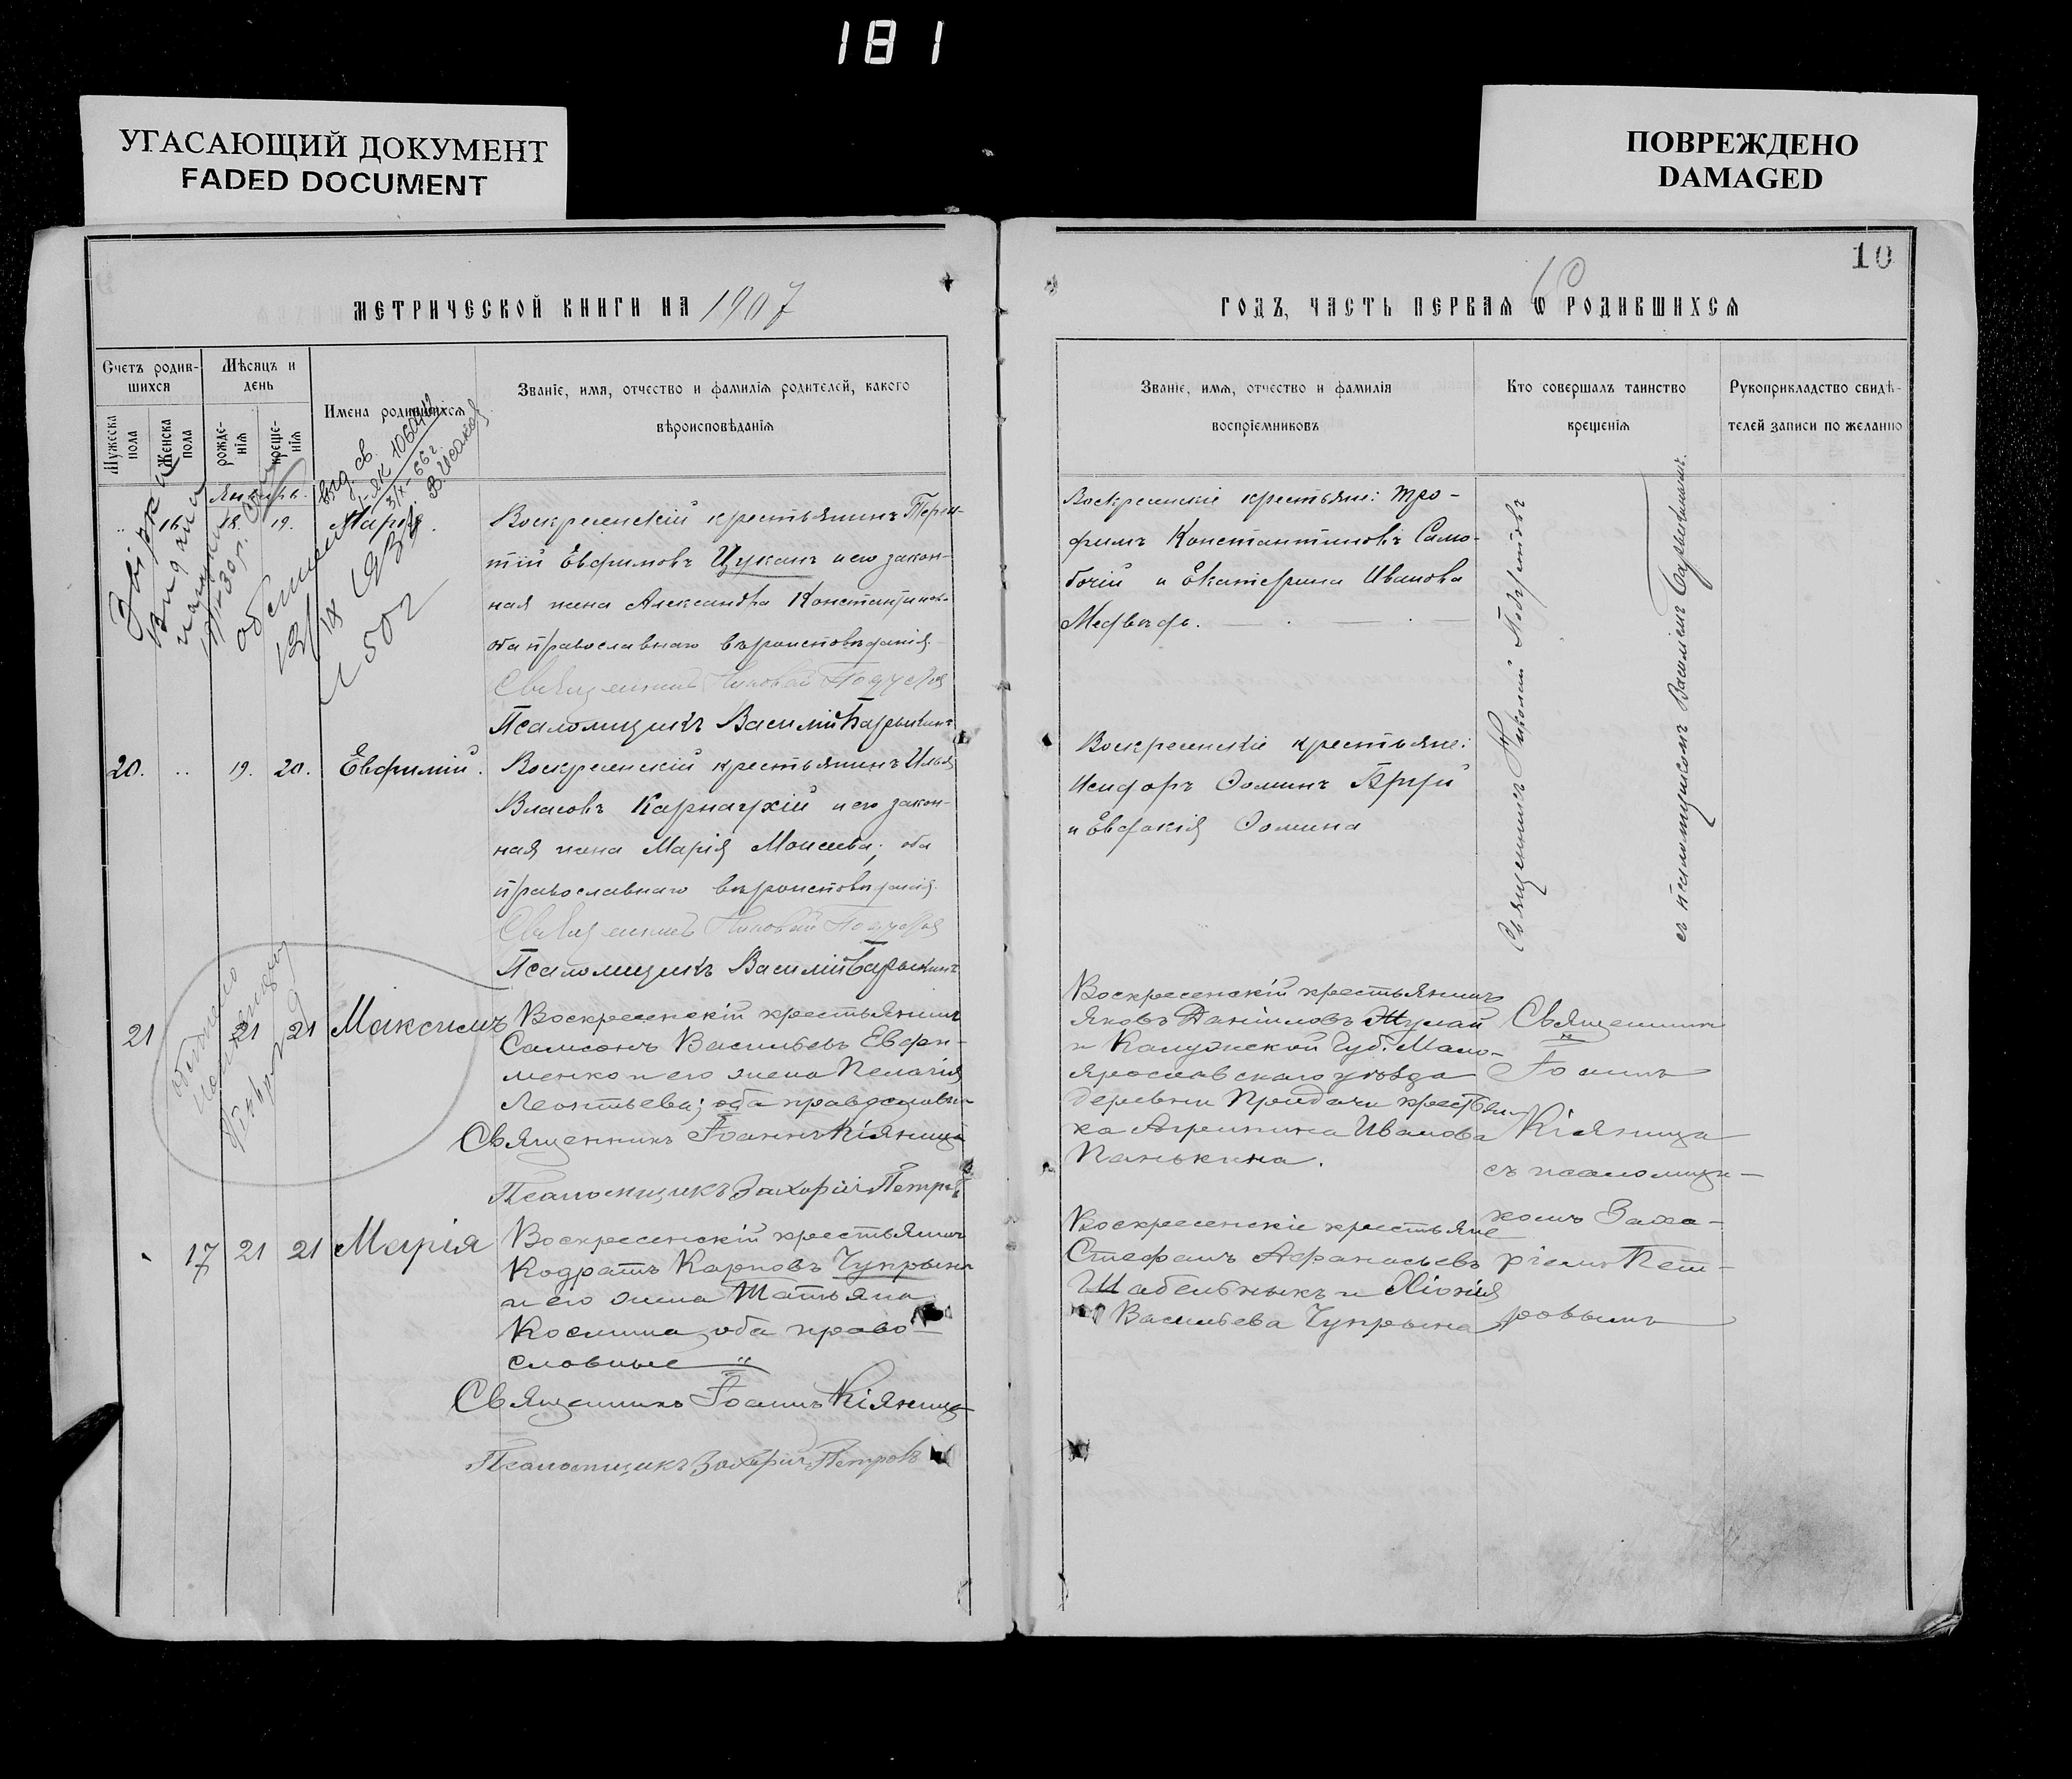 181
УГАСАЮЩИЙ ДОКУМЕНТ
FADED DOCUMENT
ПОВРЕЖДЕНО
DAMAGED
10
10
МЕТРИЧЕСКОЙ КНИГИ НА 1907
ГОДЪ, ЧАСТЬ ПЕРВАЯ Ѡ РОДИВШИХСЯ
Счетъ родив-
шихся
Мѣсяцъ и
день
Мужеска
пола
Женска
пола
рожде-
нія
креще-
нія
Имена родившихся
Званіе, имя, отчество и фамилія родителей, какого
вѣроисповѣданія
Званіе, имя, отчество и фамилія
воспріемниковъ
Кто совершалъ таинство
крещенія
Рукоприкладство свидѣ-
телей записи по желанію
выд. св.
В. Исаков
Январь.
16 18 19. Марія.
1502
Воскресенскій крестьянинъ Терен-
тій Евфимовъ Цуканъ и его закон-
ная жена Александра Константинова
оба православнаго вѣроисповѣданія.
Священникъ
Псаломщикъ Василій Барыкинъ
Воскресенскіе крестьяне: Тро-
фимъ Константиновъ Само-
бочій и Екатерина Иванова
Медвѣдь.
Священникъ Николай
съ псаломщикомъ Василіемъ Барыкинымъ.
20. .. 19. 20. Евфимій.
Воскресенскій крестьянинъ Илья
Власовъ Карнаухій и его закон-
ная жена Марія Моисеева, оба
православнаго вѣроисповѣданія.
Священникъ
Псаломщикъ Василій Барыкинъ
Воскресенскіе крестьяне:
Исидоръ Ѳоминъ
и Евдокія Ѳомина
21 21 21 Максимъ
Воскресенскій крестьянинъ
Самсонъ Васильевъ Евфи-
менко и его жена Пелагія
Леонтьева; оба православн.
Священникъ Іоаннъ Кіяница
Псаломщикъ Захарій Петровъ
Воскресенскій крестьянинъ
Яковъ Даніиловъ Жулай
и Калужской Губ. Мало-
ярославскаго уѣзда
деревни Придачи крестьян-
ка Агрипина Иванова
Панькина.
Священни
къ
Іоаннъ
Кіяница
съ псаломщи-
комъ Заха-
ріемъ Пет-
ровымъ
17 21 21 Марія
Воскресенскій крестьянинъ
Кодратъ Карповъ Чупрына
и его жена Татьяна
Космина, оба право-
славные
Священникъ Іоаннъ Кіяница
Псаломщикъ Захарій Петровъ
Воскресенскіе крестьяне
Стефанъ Афанасьевъ
Шабельныкъ и Хіонія
Васильева Чупрына